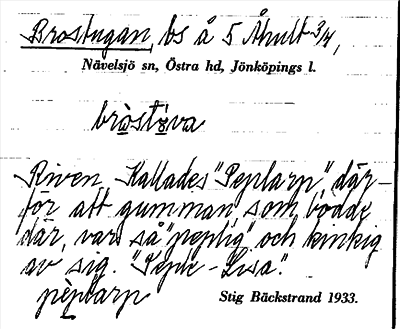 Brostugan, bs å 5 Åhult 3/4,
Nävelsjö sn, Östra hd, Jönköpings l.
bròstòva
Riven. Kallades "Peplarp", där-
för att gumman, som bodde
där, var så "peplig" och kinkig
av sig. "Peple-Lisa".
pèplarp
Stig Bäckstrand 1933.